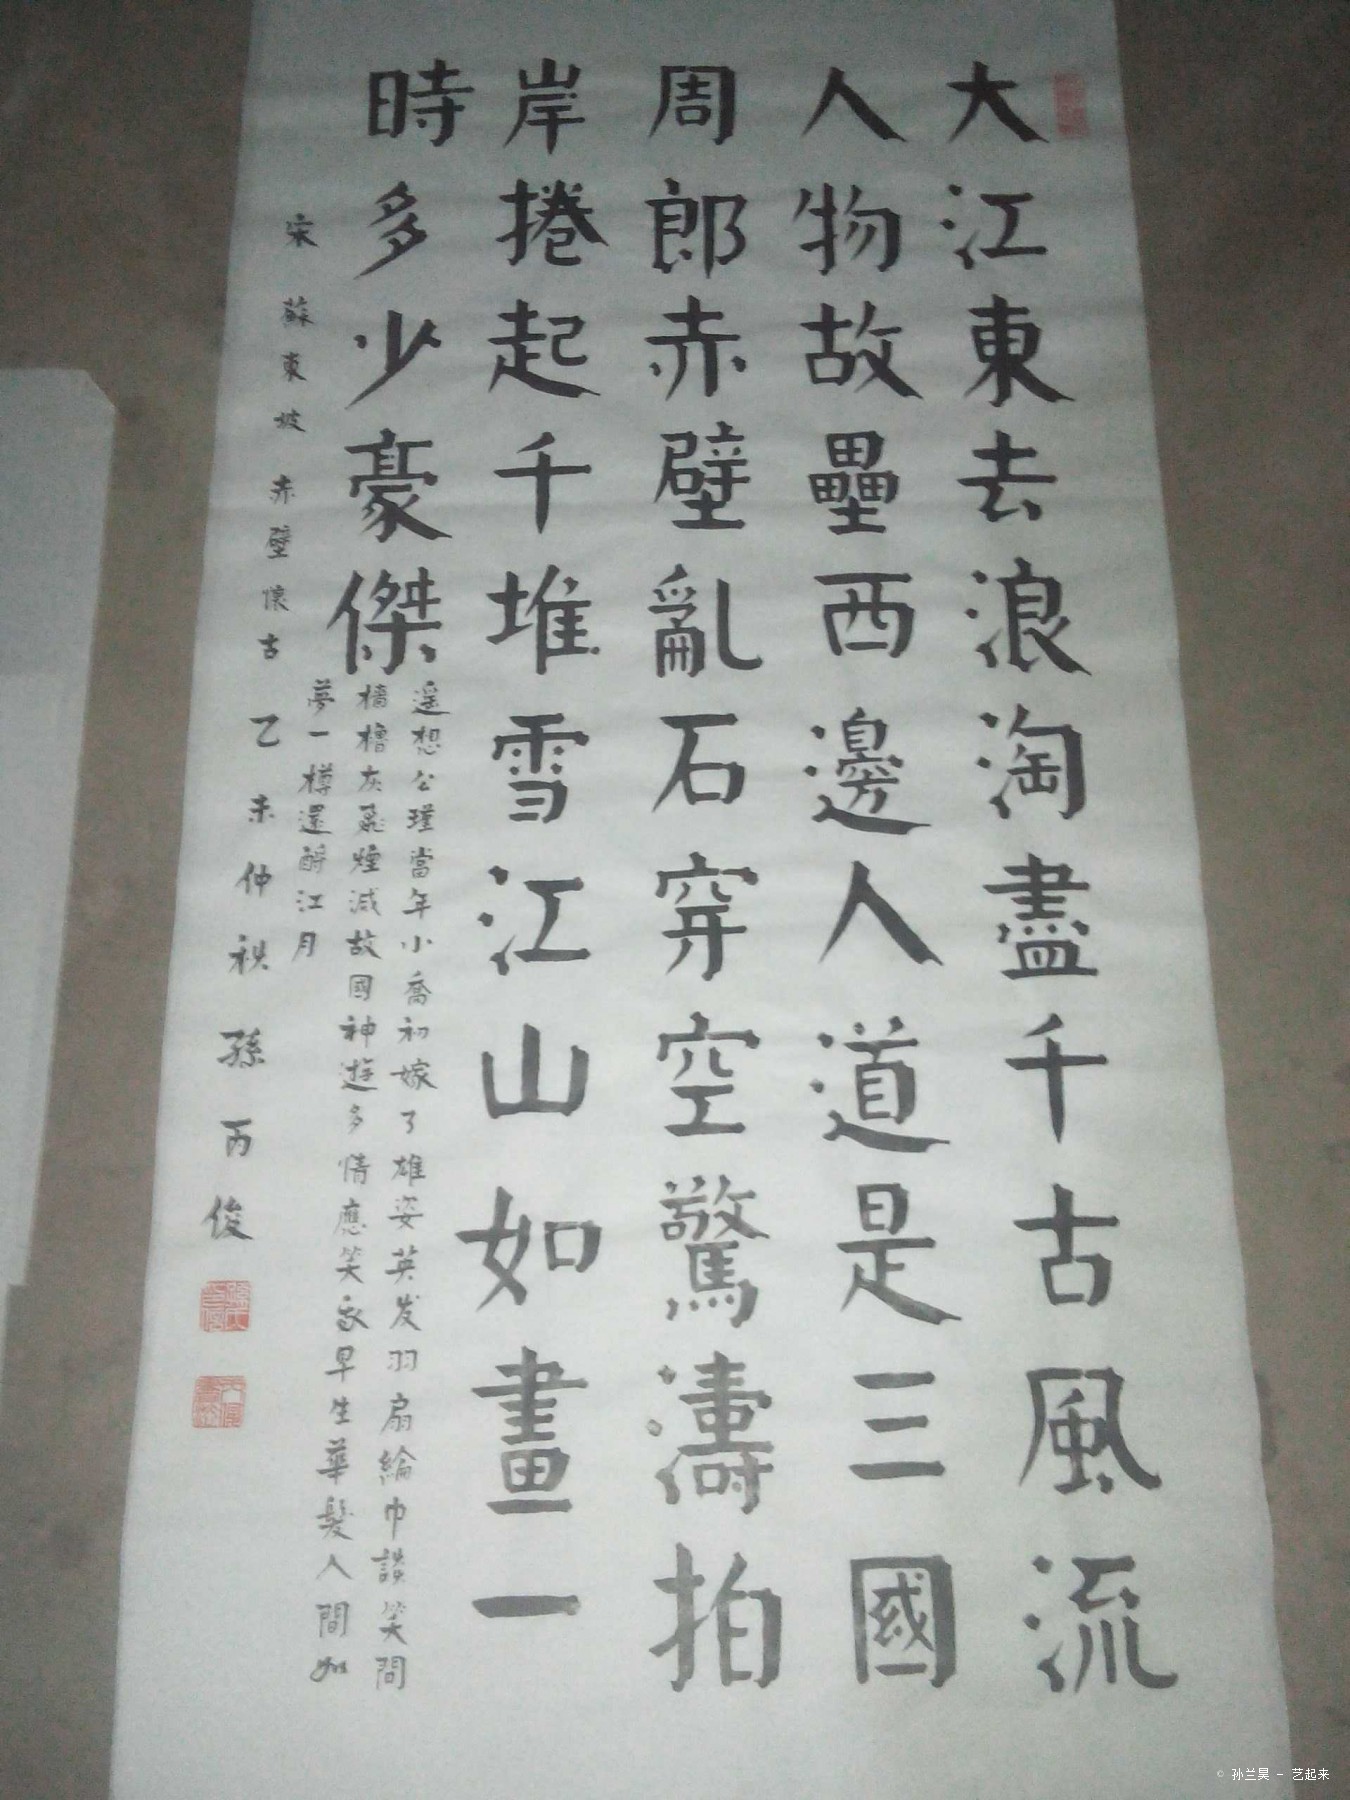 大江東去浪淘盡千古風流
人物故壘西邊人道是三國
周郎赤壁亂石穿空驚濤拍
岸捲起千堆雪江山如畫一
時多少豪傑
遥想公瑾當年小喬初嫁了雄姿英发羽扇綸巾談笑間
檣櫓灰飛煙滅故國神遊多情應笑我早生華髮人間如
夢一樽還酹江月
宋蘇東坡赤壁懷古乙未仲秋孫丙俊
© 孙兰昊 - 艺起来